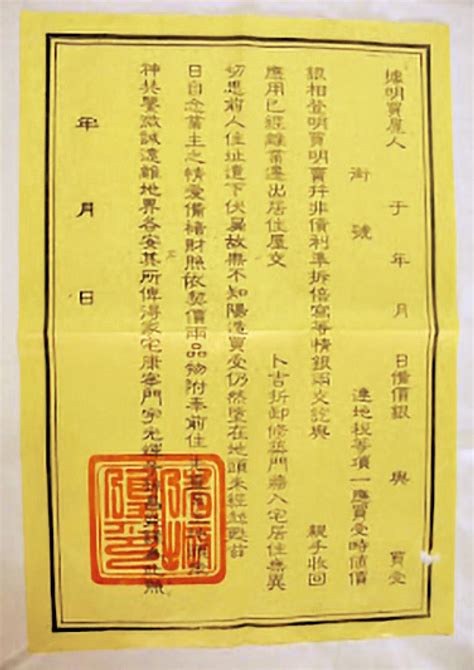 據明買屋人 于 年 月 日備價銀 與 買受
街 號 連地稅等項一應買受時值價
銀相登明買明賣幷非債利準拆倍寫等情銀兩交訖與 親手收回
應用已經離業遷出居住屋交 卜吉折卸修葺門牆入宅居住無異
切思前人住址遺下伏異故無不知陽造買受仍然墮在地頭未經
日自念業主之情爰備楮財照依契價兩品物附奉前住
神共鑒微誠遠離地界各安其所俾得家宅康寧門宇光輝
年 月 日